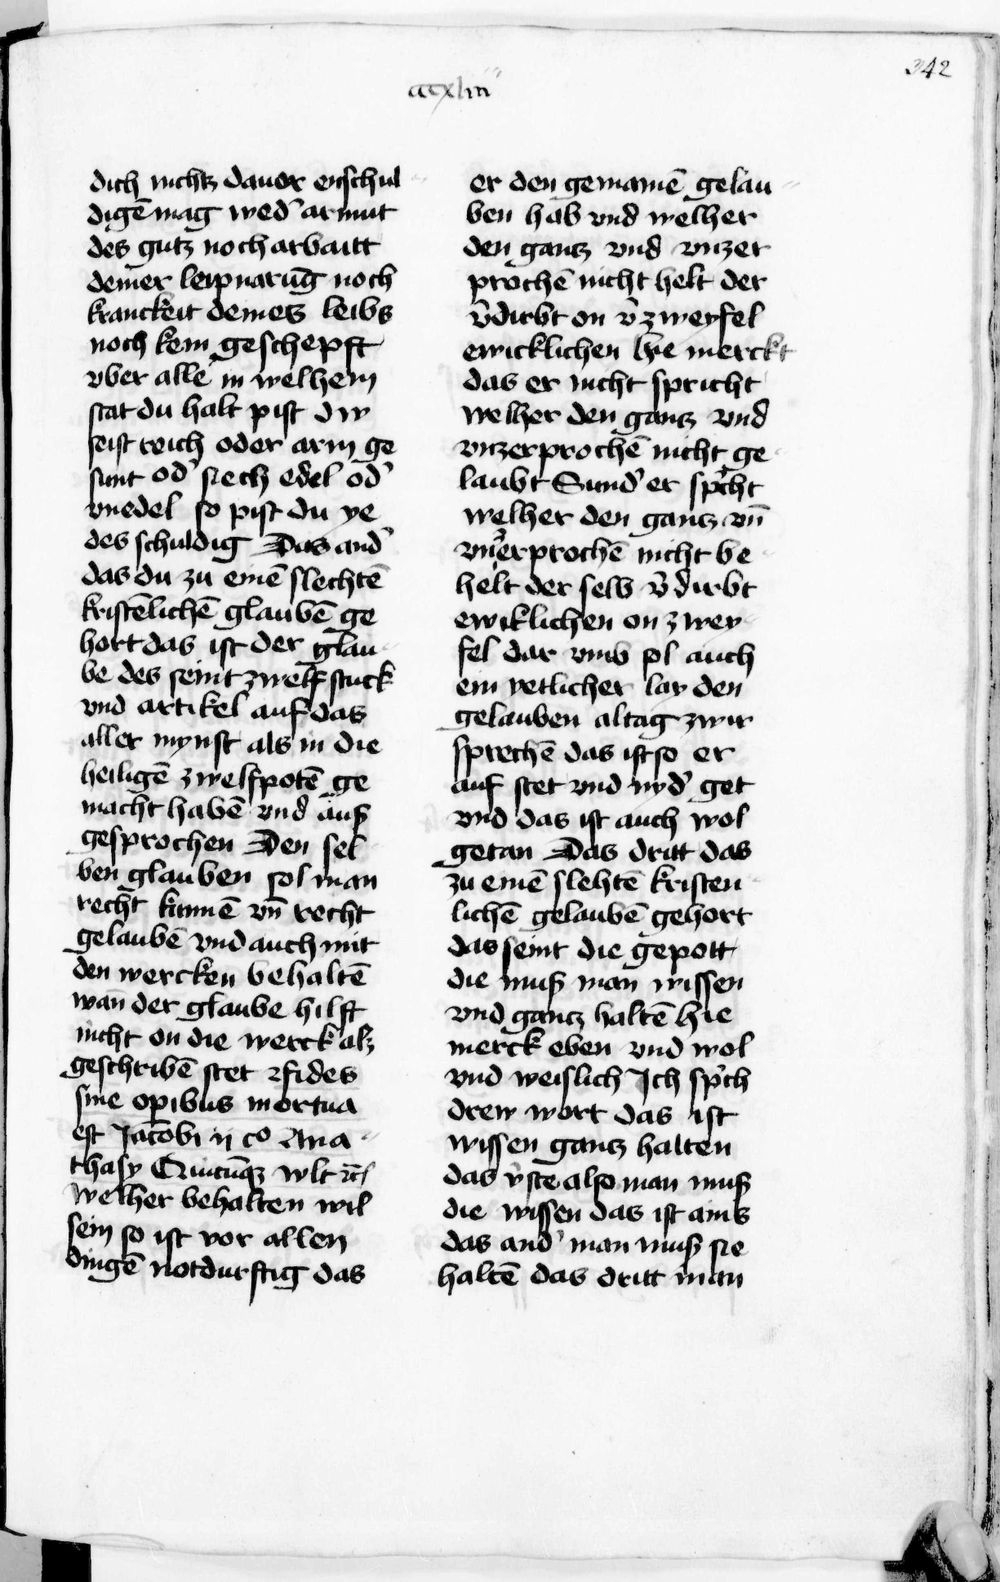 342
ccxliii
dich nichtz dauor enschul
digē mag wed' armut
des gutz noch arbaitt
deiner leipnarūg noch
kranckeit deines leibs
noch kein geschepft
vber alle in welhem
stat du halt pist dw
seist reich oder arm ge
sunt od' siech edel od'
vnedel so pist du ye
des schuldig Das and'
das du zu einē slechtē
kristēlichē glaubē ge
hort das ist der glau
be des seint zwelf stuck
vnd artikel auf das
aller mynst als in die
heiligē zwelfpotē ge
macht habē vnd auß
gesprochen Den sel
ben glauben sol man
recht kunnē vn̄ recht
gelaubē vnd auch mit
den wercken behaltē
wan̄ der glaube hilft
nicht on die werck alz
geschribē stet fides
sine opibus mortua
est Jacobi ii co Ana
thasy Quicūqz wlt
welher behalten wil
sein so ist vor allen
dingē notdurftig das
er den gemainē gelau
ben hab vnd welher
den gantz vnd vnzer
prochē nicht helt der
v'dirbt on zweyfel
ewicklichen hye merckt
das er nicht spricht
welher den gantz vnd
vnzerprochē nicht ge
laubt Sund' er sp'cht
welher den gantz vn̄
vnzerprochē nicht be
helt der selb v'dirbt
ewiklichen on zwey
fel dar vmb sol auch
ein yetlicher lay den
gelauben altag zwir
sprechē das ist so er
auf stet vnd nyd' get
vnd das ist auch wol
getan Das dritt das
zu einē slehtē kristen
lichē gelaubē gehort
das seint die gepott
die muß man wissen
vnd gantz haltē hie
merck eben vnd wol
vnd weislich Ich sp'ch
drew wort das ist
wissen gantz halten
das erste also man muß
die wissen das ist ains
das and' man muß sie
haltē das dritt man